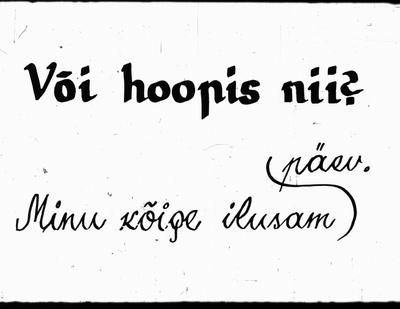 Või hoopis nii?
päev.
Minu kõige ilusam